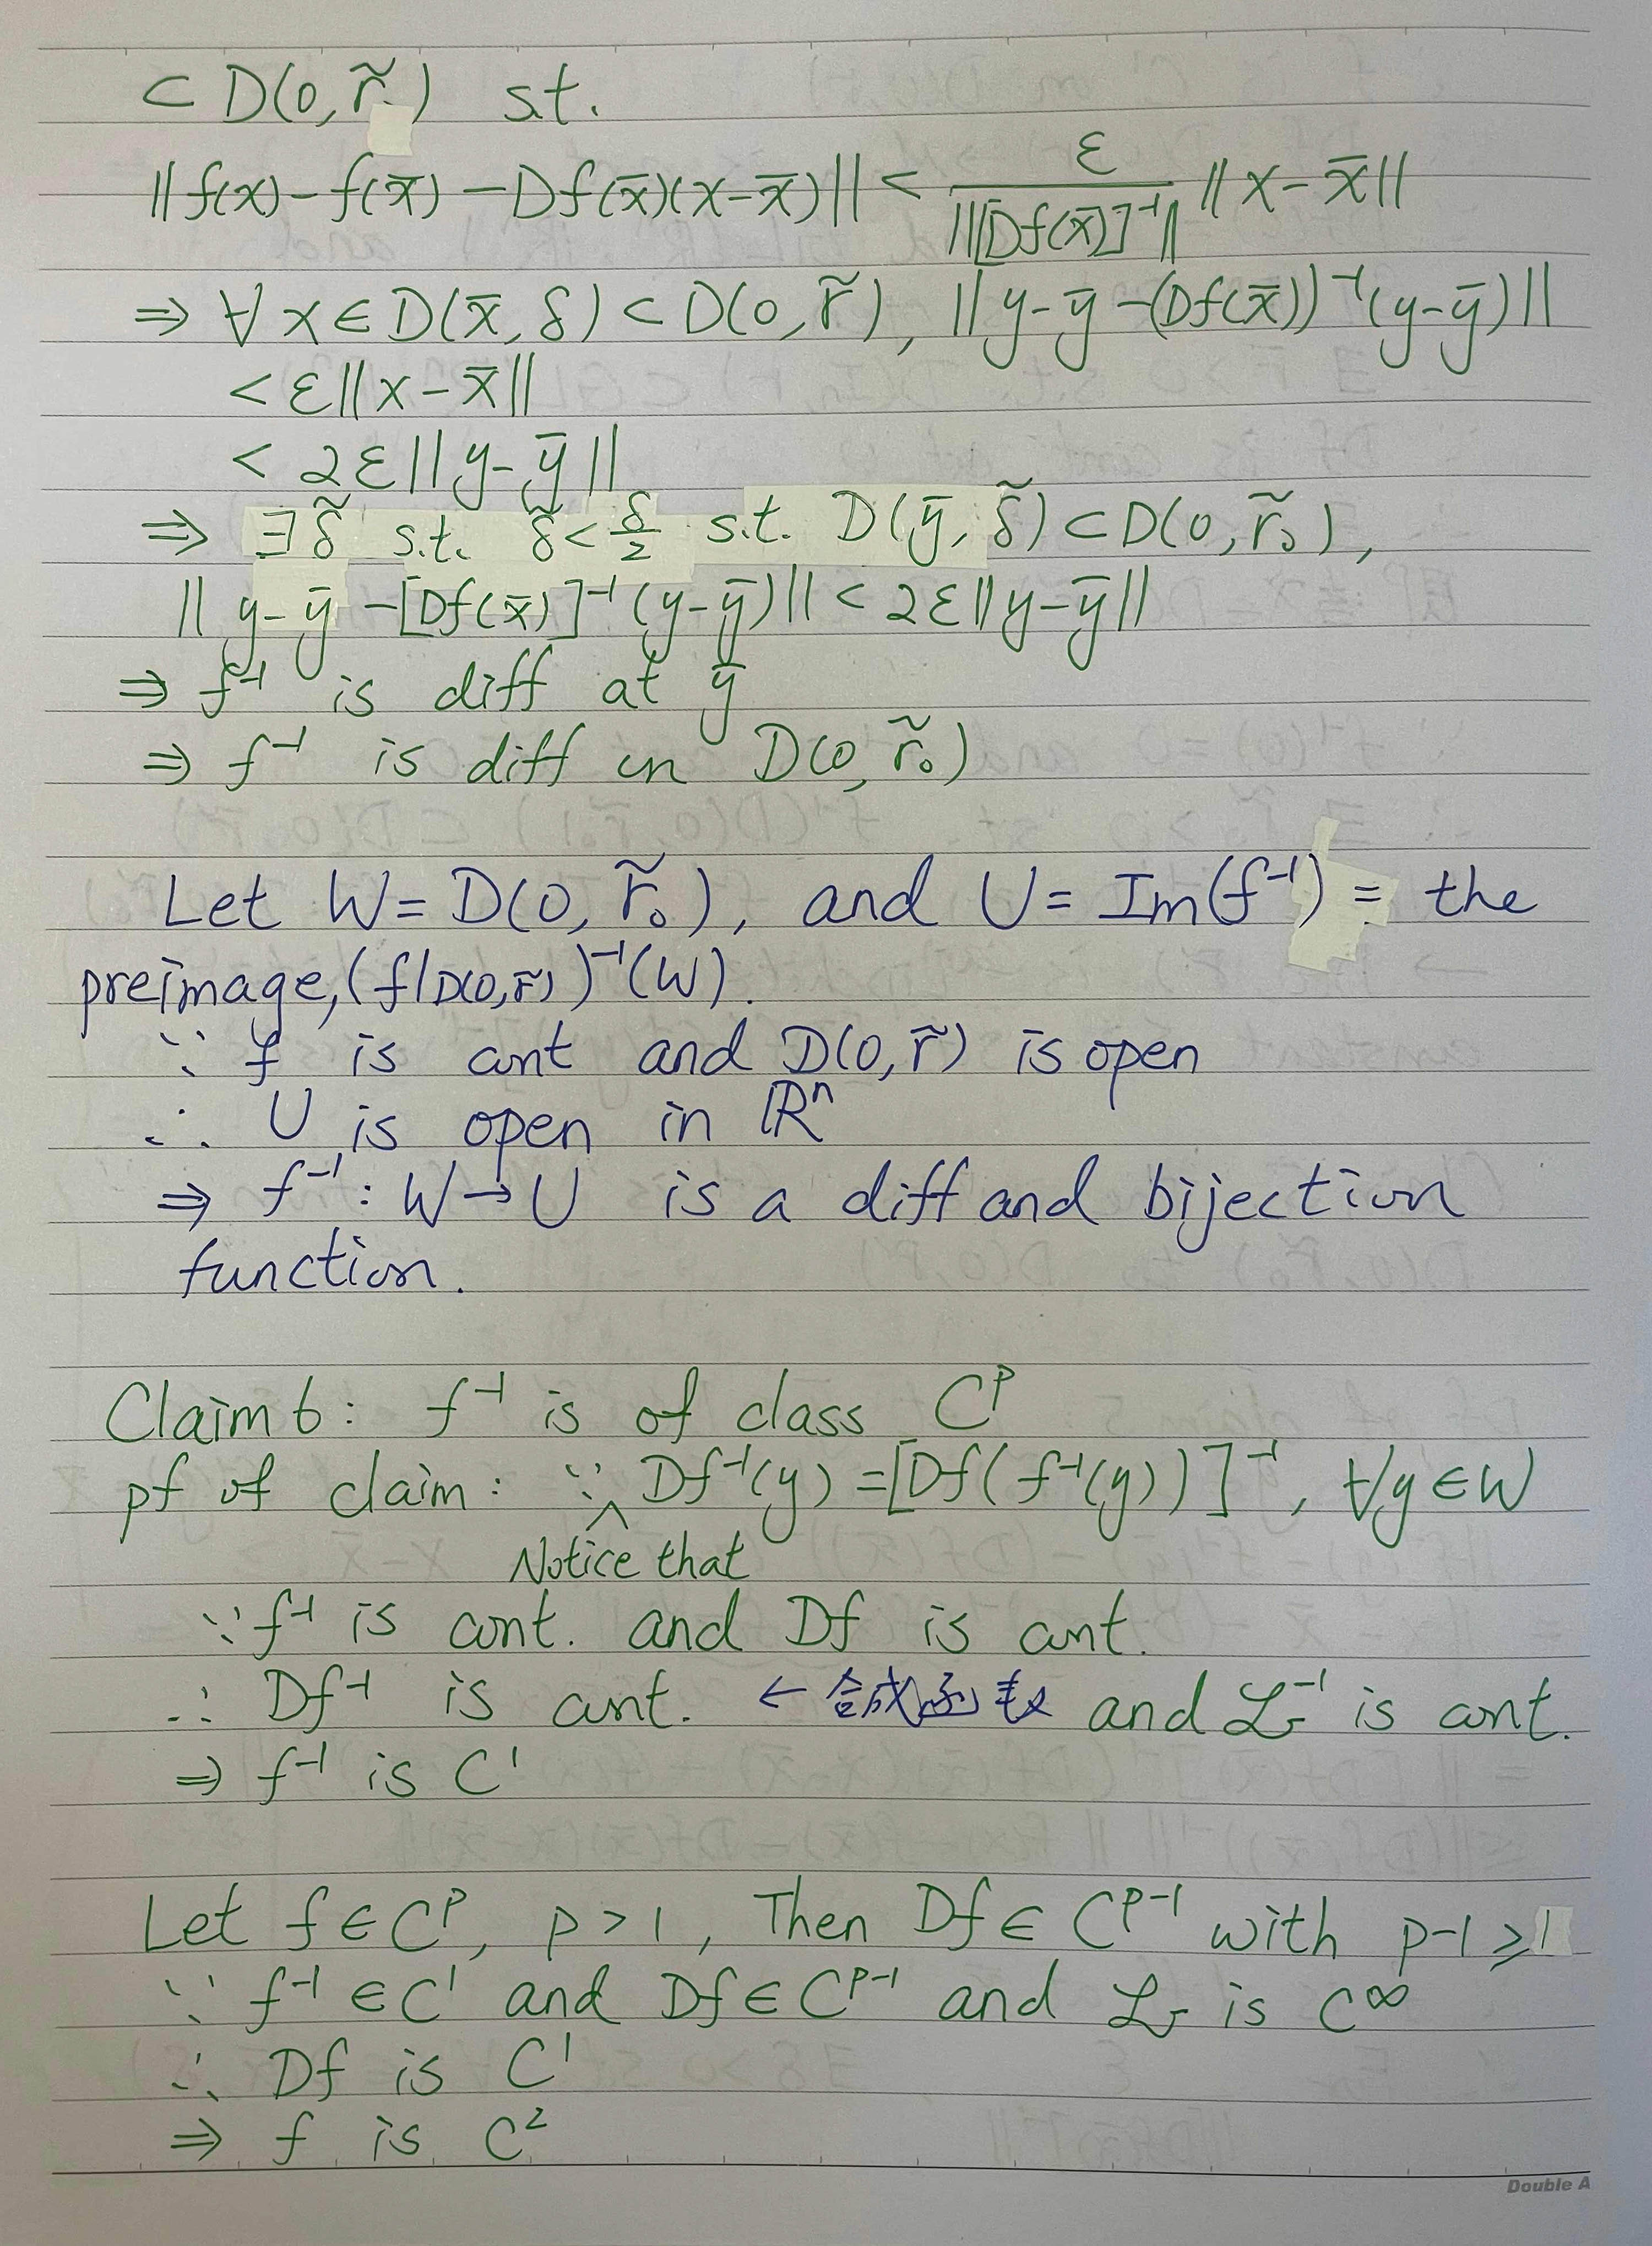 ⊂ D(0, r̃ ) s.t.
‖f(x) - f(x̄) - Df(x̄)(x-x̄)‖ < ε/‖[Df(x̄)]⁻¹‖ ‖x-x̄‖
⇒ ∀ x ∈ D(x̄, δ) ⊂ D(0, r̃), ‖y-ȳ-(Df(x̄))⁻¹(y-ȳ)‖
< ε‖x-x̄‖
< 2ε‖y-ȳ‖
⇒ ∃ δ̃ s.t. δ̃ < δ/2 s.t. D(ȳ, δ̃) ⊂ D(0, r̃₀),
‖y-ȳ-[Df(x̄)]⁻¹(y-ȳ)‖ < 2ε‖y-ȳ‖
⇒ f⁻¹ is diff at ȳ
⇒ f⁻¹ is diff in D(0, r̃₀)
Let W = D(0, r̃₀), and U = Im(f⁻¹) = the
preimage, (f|D(0,r̃))⁻¹(W).
∵ f is cont and D(0, r̃) is open
∴ U is open in ℝⁿ
⇒ f⁻¹: W → U is a diff and bijection
function.
Claim 6: f⁻¹ is of class Cᵖ
pf of claim: ∵ Df⁻¹(y) = [Df(f⁻¹(y))]⁻¹, ∀y ∈ W
^ Notice that
∵ f⁻¹ is cont. and Df is cont.
∴ Df⁻¹ is cont. ← 合成函数 and ℒ⁻¹ is cont.
⇒ f⁻¹ is C¹
Let f ∈ Cᵖ, p > 1, Then Df ∈ Cᵖ⁻¹ with p-1 ⩾ 1
∵ f⁻¹ ∈ C¹ and Df ∈ Cᵖ⁻¹ and ℒ is C∞
∴ Df is C¹
⇒ f is C²
Double A